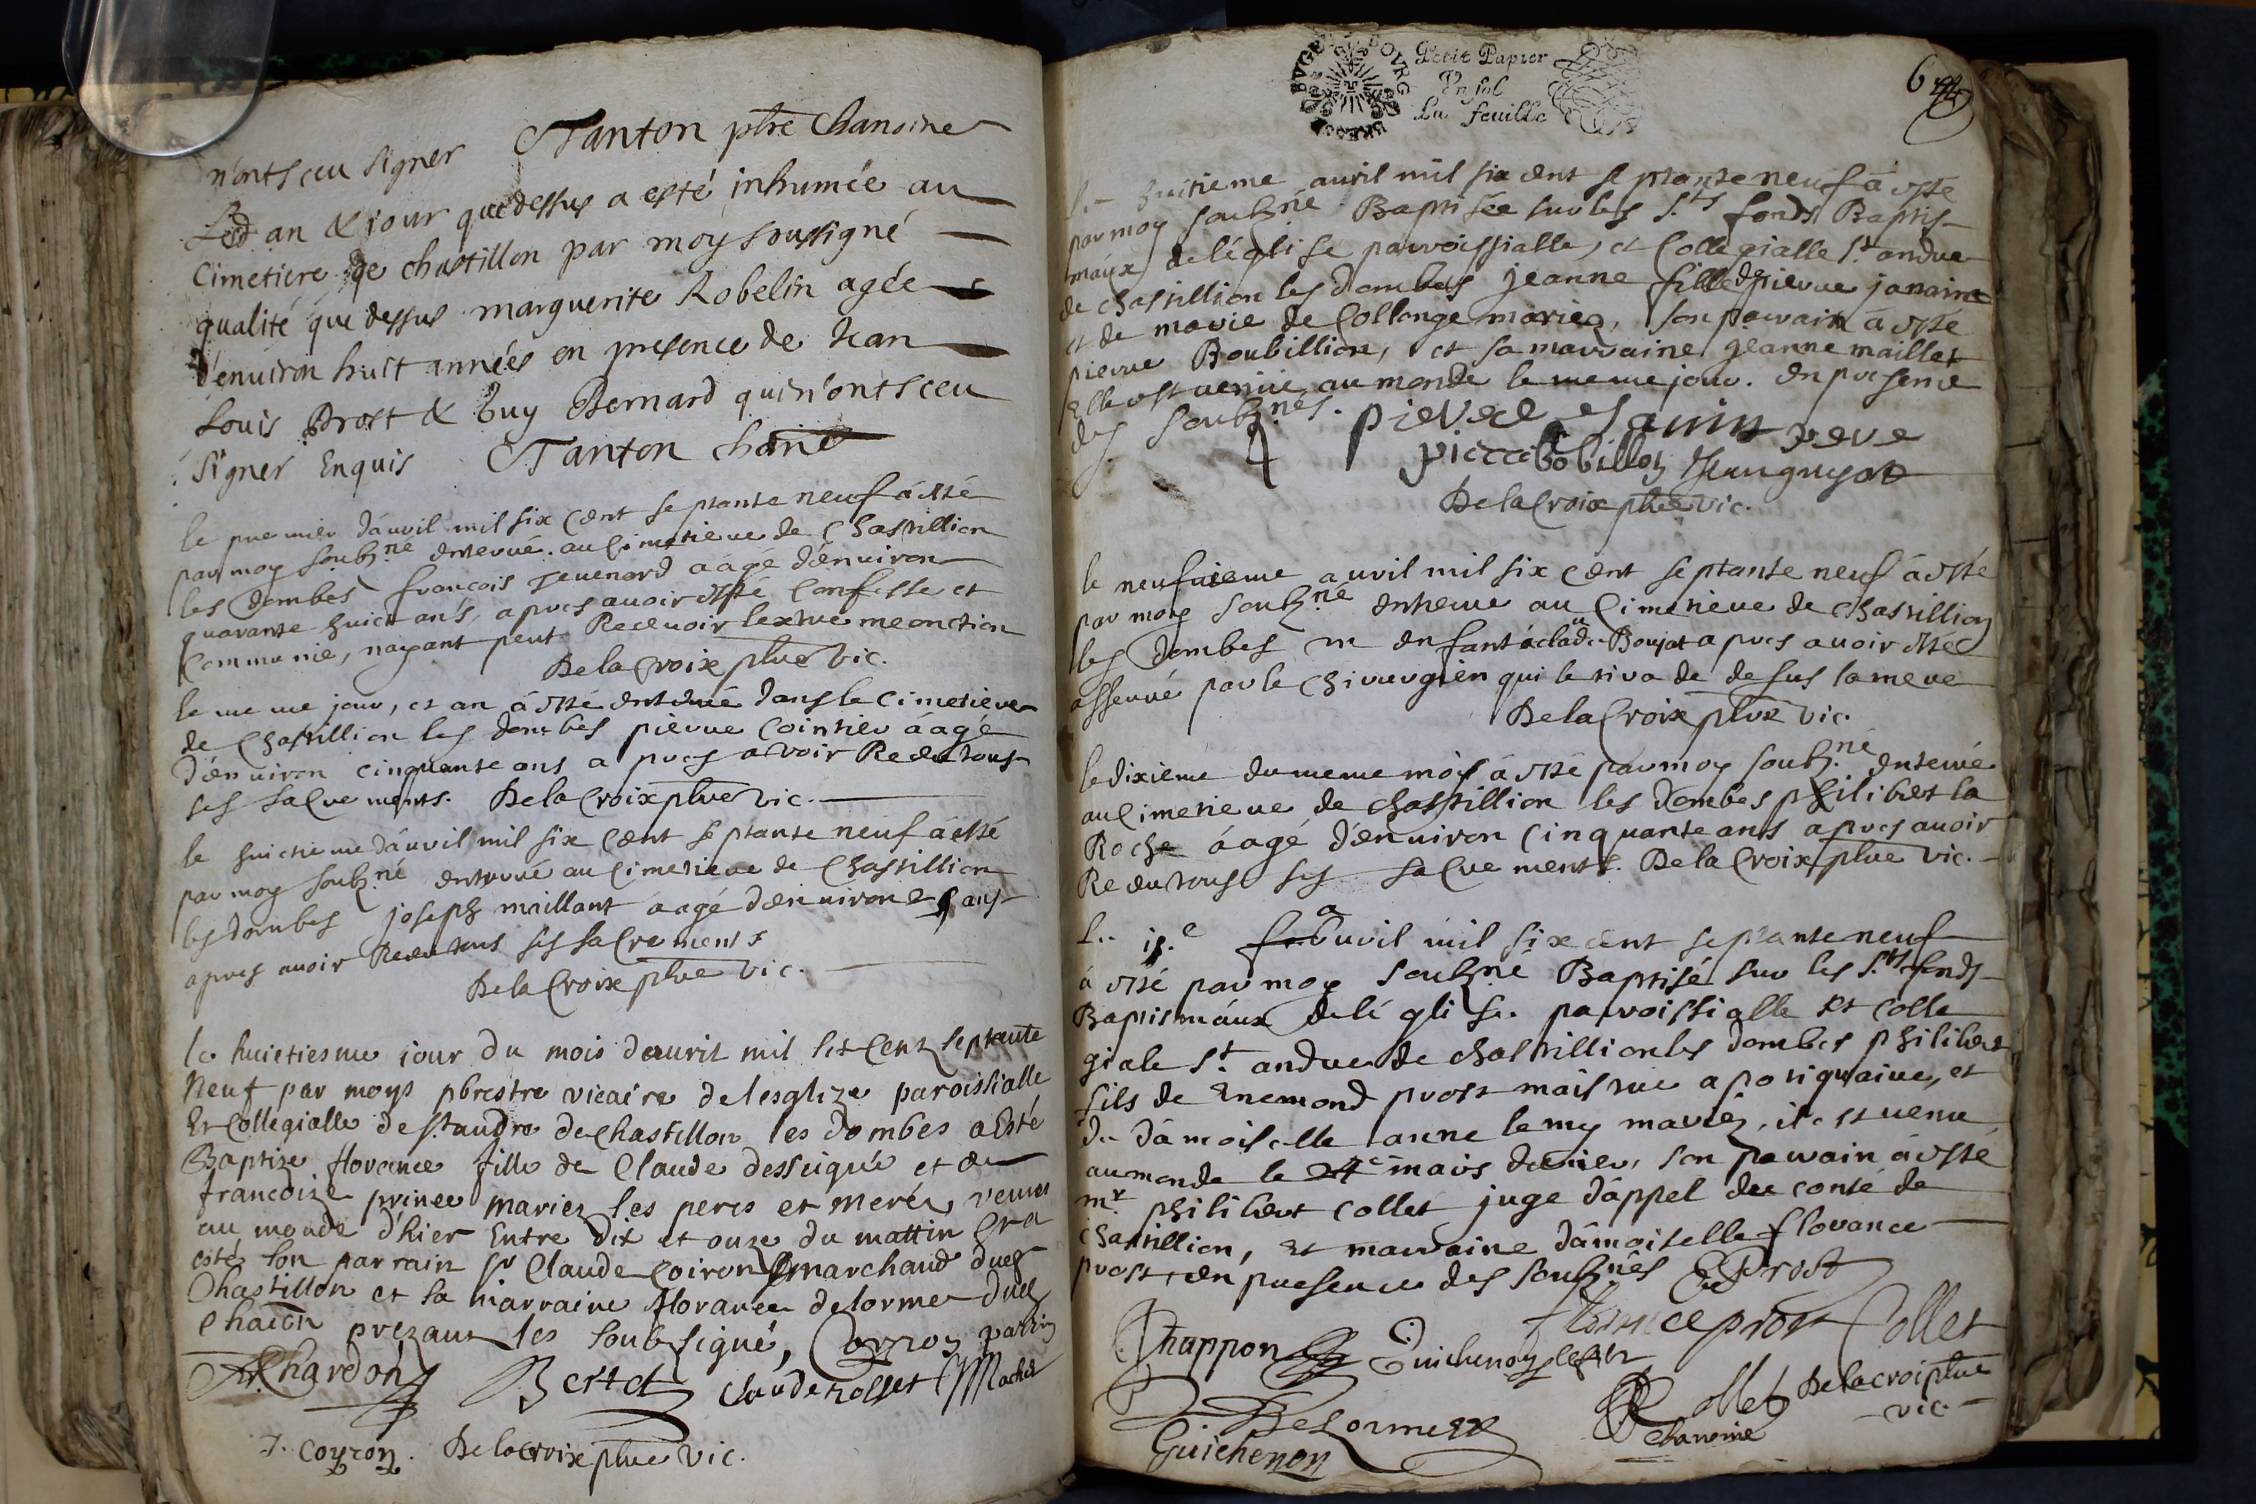 n'ont sceu signer Tanton pbre Chanoine
Led an & jour que dessus a esté inhumée au
Cimetiere de chastillon par moy soussigné
qualité que dessus marguerite Robelin agée
d'enuiron huit années en presence de Jean
Louis Prost & Guy Bernard qui n'ont sceu
signer Enquis Tanton chane
le premier dáuril mil six cent septante neuf á esté
par moy soubz.né enterré au Cimetiere de Chastillion
les Dombes francois Teuenard áagé dénuiron
quarante huict ans, apres auoir esté Confessé et
Communié, nayant peut Receuoir lextreme onction
De la Croix pbre vic.
le meme jour, et an á esté enterré dans le Cimetiere
de Chastillion les dombes pierre Cointier áagé
dénuiron cinquante ans apres avoir Receu tous
ses sacrements. De la Croix pbre vic.
le huictieme dáuril mil six cent septante neuf á esté
par moy soubz.né enterré au Cimetiere de Chastillion
les dombes joseph maillant áagé dénuiron ans
apres auoir Receu tous ses sacrements
De la Croix pbre vic.
le huictiesme jour du mois dauril mil six Cent septante
Neuf par moys pbrestre vicaire de lesglize paroissialle
Et Collegialle de st andre de Chastillon les dombes a Esté
Baptize florence fille de Claude desseigné et de
francoize prince mariez les peres et meres venue
au monde d'hier Entre dix et onze du mattin Et a
esté son parrain sr Claude Coiron marchand dud
Chastillon et sa marraine florance delorme dud
Chaōn prezant les soubsigné, Coyron parrin
Chardon Bertet Claude rollet
J. Coyron. De la croix pbre vic.
BVGEY BOVRG BRESSE
Petit Papier
Vn sol
La feuille
6
L.. huitieme auril mil six cent septante neuf á esté
par moy soubz.né Baptisée sur les S.ts fonds Baptis-
máux de l'église parroissialle, et Collegialle S.t andre
de Chastillion les dombes Jeanne fille de pierre janain
et de marie de Collonge mariez, son parrain á esté
pierre Boubillion, et sa marraine jeanne maillet
Elle est venue au monde le meme jour. en presence
des soubz.nés. pierre Janin pere
pierre bobillon
De la Croix pbre vic.
le neufuieme auril mil six cent septante neuf á esté
par moy soubz.né enterre au Cimetiere de Chastillion
les Dombes un enfant á claude Boujat apres auoir esté
par le Chirurgien qui le tira de desus sa mere
De la Croix pbre vic.
le dixieme du meme mois á esté par moy soubz.né enterré
au Cimetiere de chastillion les dombes philibert la
Roche áagé dénuiron Cinquante ans apres auoir
Receu tous ses sacrements. De la Croix pbre vic.
L.. auril mil six cent septante neuf
á esté par moy soubz.né Baptisé sur les S.ts fonds
Baptismáux de l'église parroissialle et colle
giale S.t andre de chastillion les dombes philibert
fils de Enemond prost maistre apotiquaire, et
de dámoiselle anne lemy mariez, il est venu
au monde le 24e mars dernier, son parrain á esté
mr. philibert Collet juge d'appel du conté de
chastillion, et marraine dámoiselle florance
prost, en presence des soubz.nés E Prost
florance prost Collet
Chappon Guichenon
Delorme Collet De la croi pbre
chanoine vic.
Guichenon